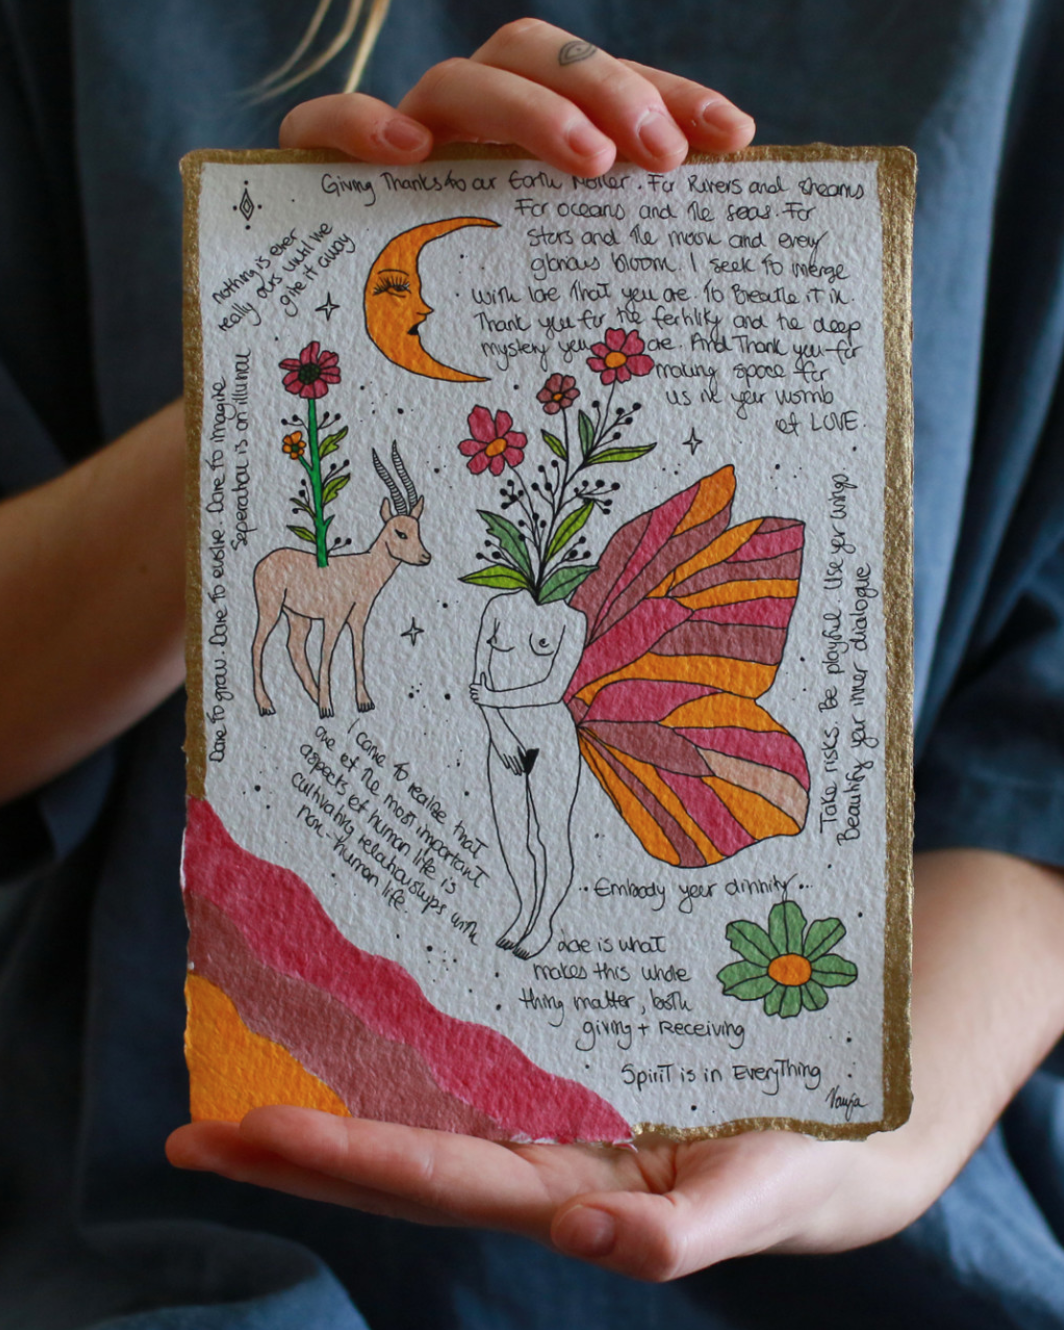 Giving Thanks to our Earth Mother. For Rivers and streams
For oceans and the seas. For
stars and the moon and every
glorious bloom. I seek to merge
with love that you are. To Breathe it in.
Thank you for the fertility and the deep
mystery you are. And Thank you for
making space for
us in your womb
of LOVE.
nothing is ever
really ours until we
give it away
Dare to grow. Dare to evolve. Dare to imagine
Seperation is an illusion
I come to realize that
one of the most important
aspects of human life is
cultivating relationships with
non-human life.
Take risks. Be playful. Use your wings
Beautify your inner dialogue
.. Embody your divinity...
Love is what
makes this whole
thing matter, both
giving + Receiving
Spirit is in Everything
Vanja